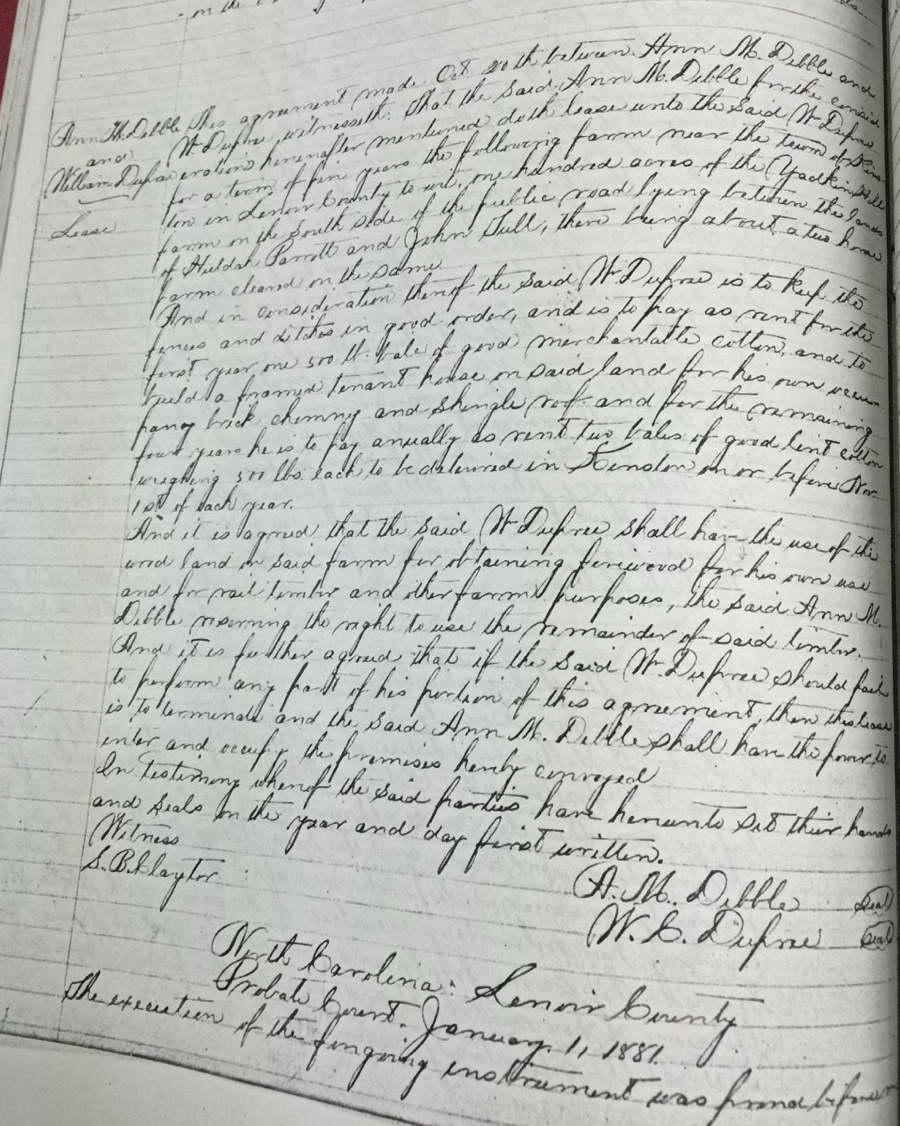 on the
Ann M. Debble
and
William Dupree
Lease
This agreement made Oct 20th between Ann M. Debble and
Wm Dupree, witnesseth: That the said Ann M. Debble for the consid-
eration hereinafter mentioned doth lease unto the said Wm Dupree
for a term of five years the following farm near the town of Kins-
ton in Lenoir County to wit, one hundred acres of the Yadkin Hill
farm on the South side of the public road lying between the lands
of Huldah Parrott and John Tull, there being about a two horse
farm cleared on the same
And in consideration thereof the said Wm Dupree is to keep the
fences and ditches in good order, and is to pay as rent for the
first year one 500 lb. bale of good merchantable cotton, and to
build a framed tenant house on said land for his own occu-
pancy brick chimney and shingle roof and for the remaining
four years he is to pay anually as rent two bales of good lint cotton
weighing 500 lbs each to be delivered in Kinston on or before Nov
1st of each year.
And it is agreed, that the said Wm Dupree shall have the use of the
wood land on said farm for obtaining firewood for his own use
and for rail timber and other farm purposes, the said Ann M.
Debble reserving the right to use the remainder of said timber.
And it is further agreed that if the said Wm Dupree should fail
to perform any part of his portion of this agreement, then this lease
is to terminate and the said Ann M. Debble shall have the power to
enter and occupy the premises hereby conveyed
In testimony whereof the said parties have hereunto set their hands
and seals on the year and day first written.
Witness
S. B. Claytor
A. M. Debble seal
W. C. Dupree seal
North Carolina: Lenoir County
Probate Court. January 1, 1881.
The execution of the foregoing instrument was proved before